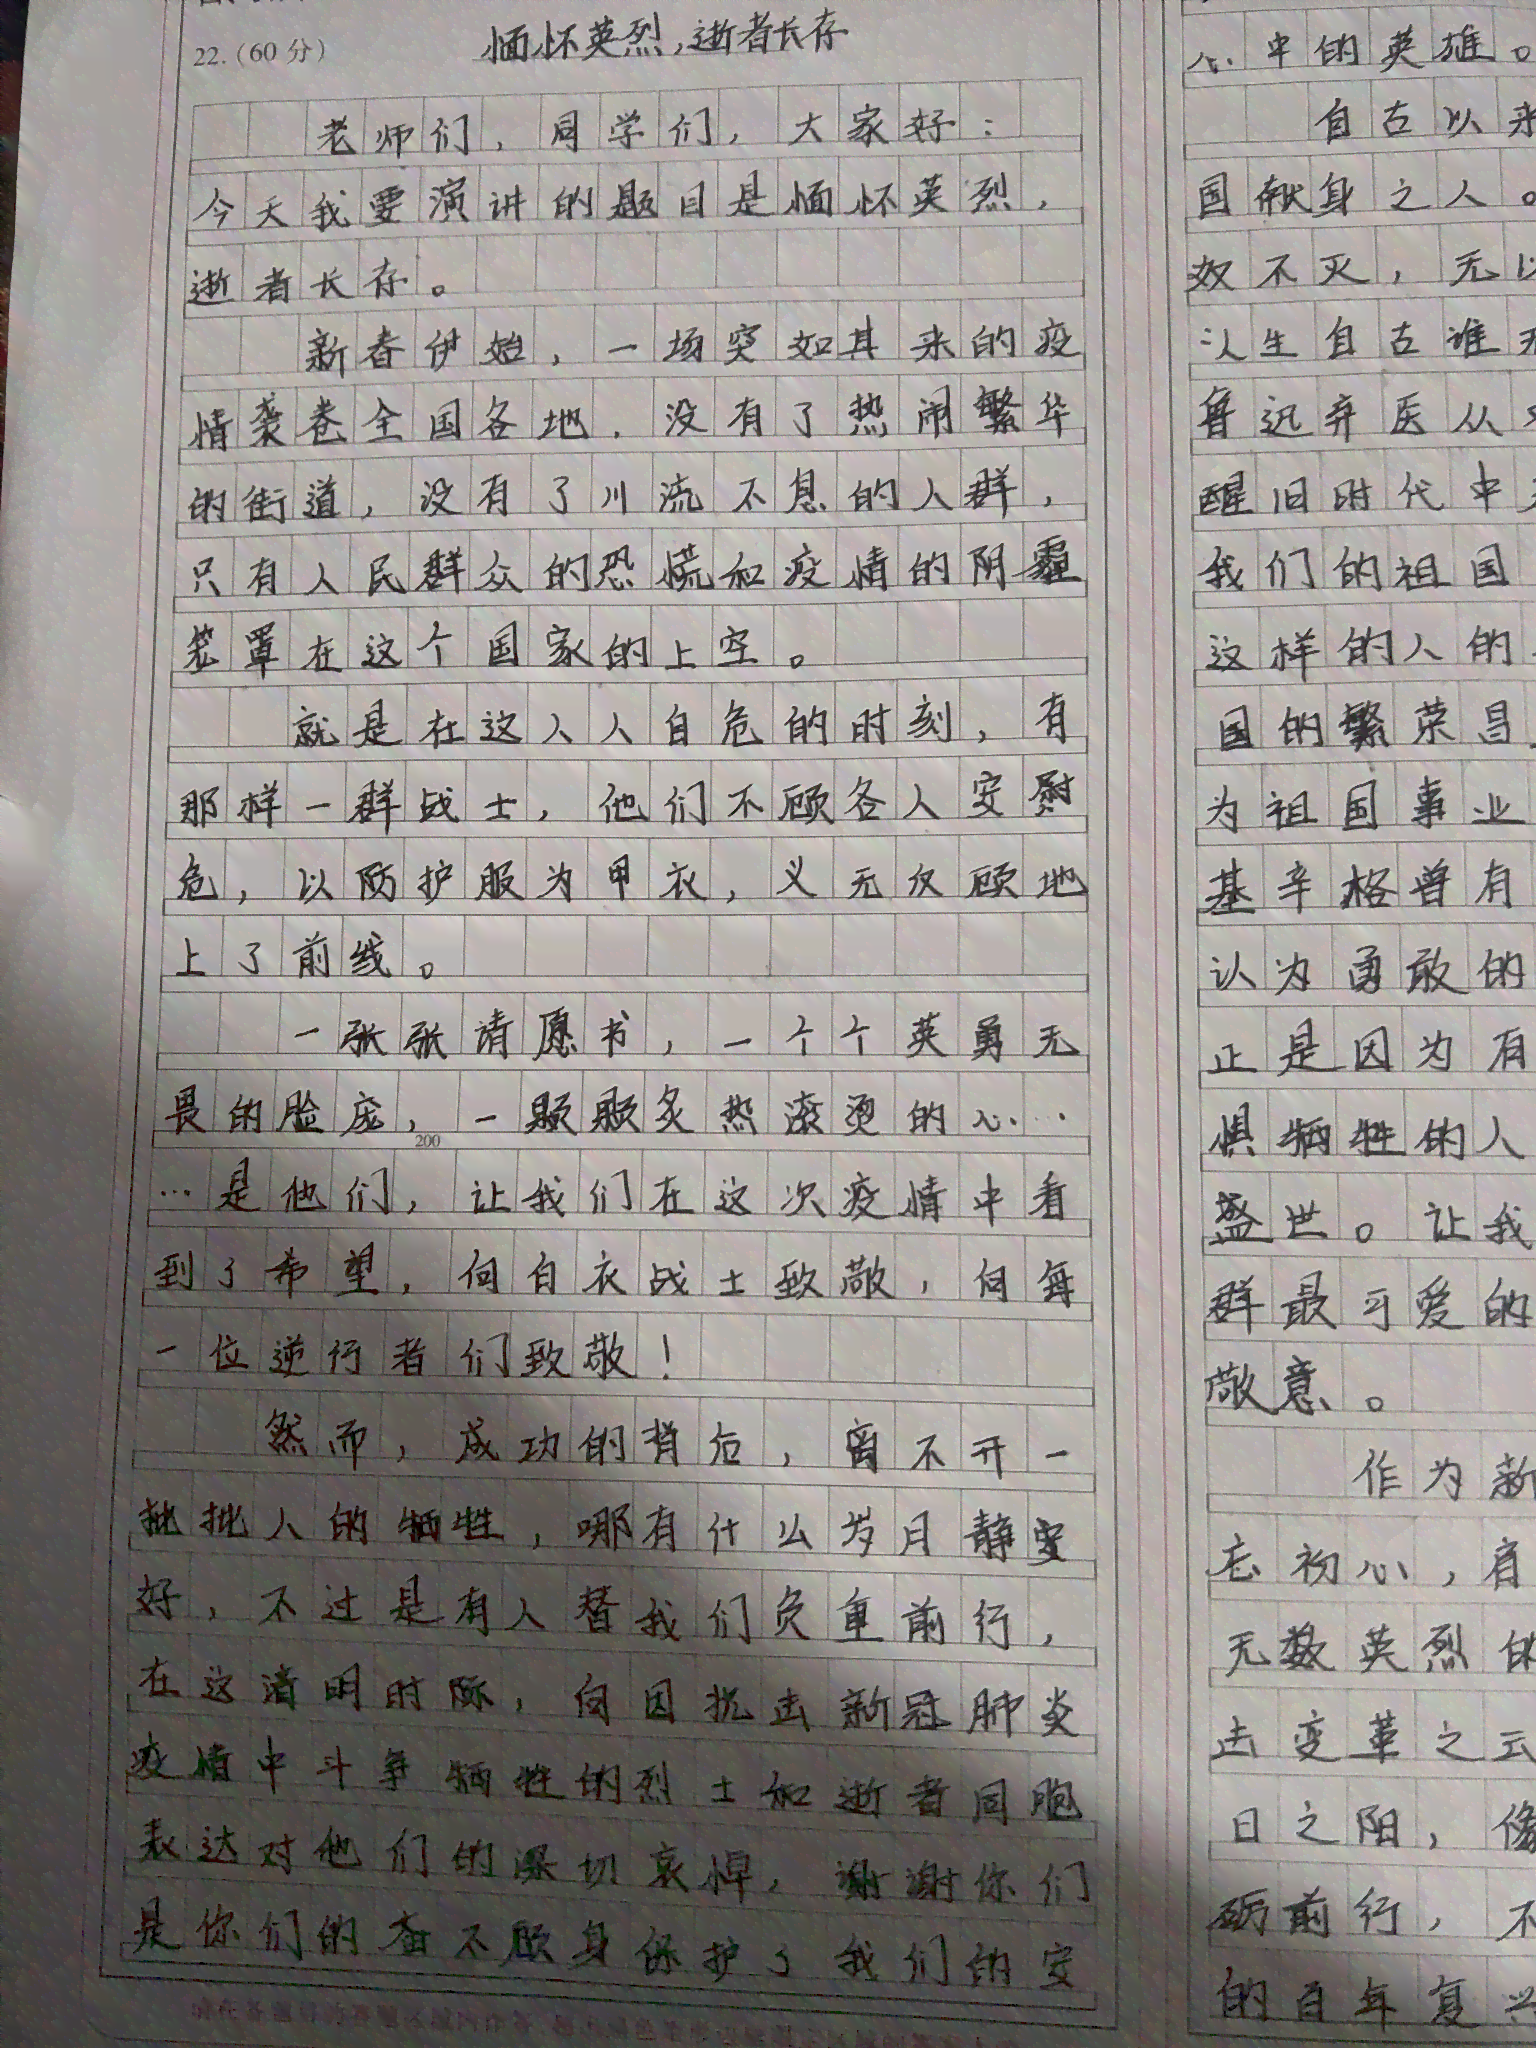 22.(60分)
缅怀英烈,逝者长存
老师们,同学们,大家好:
今天我要演讲的题目是缅怀英烈,
逝者长存。
新春伊始,一场突如其来的疫
情袭卷全国各地.没有了热闹繁华
的街道,没有了川流不息的人群,
只有人民群众的恐慌和疫情的阴霾
笼罩在这个国家的上空。
就是在这人人自危的时刻,有
那样一群战士,他们不顾各人安
危,以防护服为甲衣,义无反顾地
上了前线。
一张张请愿书,一个个英勇无
畏的脸庞,一颗颗炙热滚烫的心…
200
…是他们,让我们在这次疫情中看
到了希望,向白衣战士致敬,向每
一位逆行者们致敬!
然而,成功的背后,离不开一
批批人的牺牲,哪有什么岁月静
好,不过是有人替我们负重前行,
在这清明时际,向因抗击新冠肺炎
疫情中斗争牺牲的烈士和逝者同胞
表达对他们的深切哀悼,谢谢你们
是你们的奋不顾身保护了我们的安
心中的英雄。
自古以来
国献身之人。
奴不灭,无以
人生自古谁无
鲁迅弃医从
醒旧时代中
我们的祖国
这样的人的
国的繁荣昌
为祖国事业
基辛格曾有
认为勇敢的
正是因为有
惧牺牲的人
盛世。让我
群最可爱的
敬意。
作为新
忘初心,肩
无数英烈的
击变革之云
日之阳,像
砺前行,不
的百年复兴